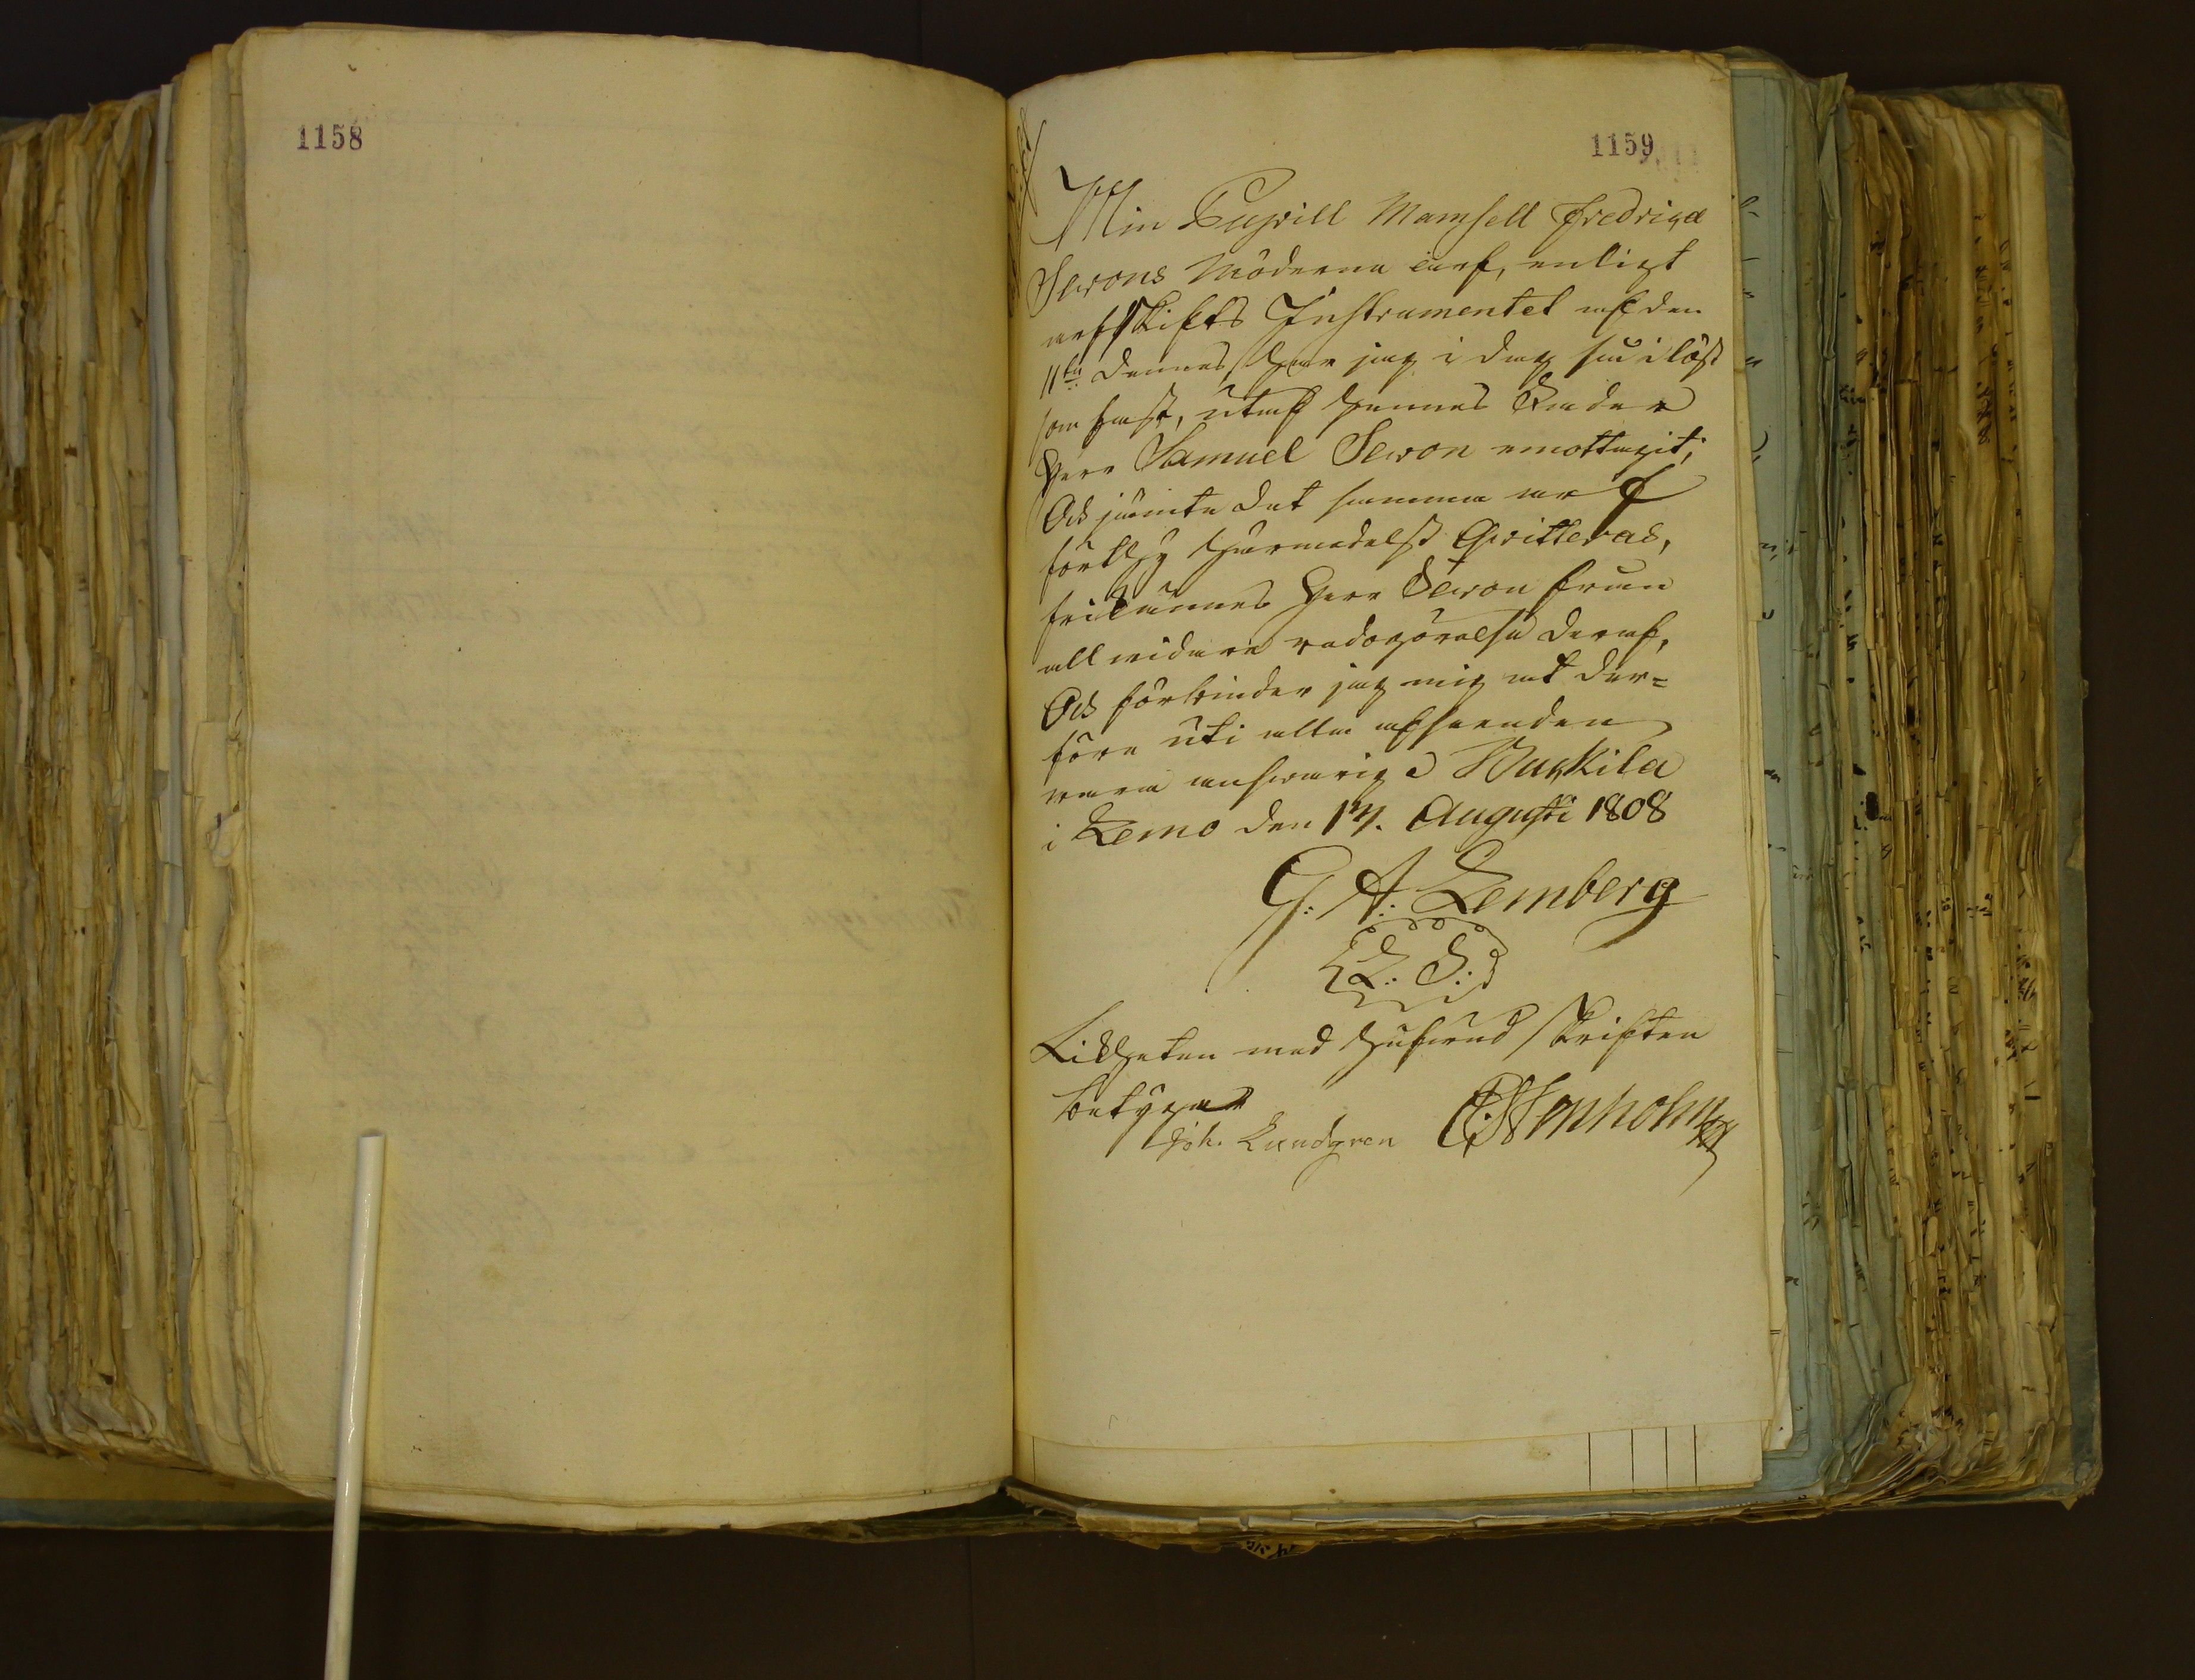 1158
1159
Min Pupill Mamsell Fredrica
Sevons Möderne arf, enligt
arfskifts Instrumentet af den
11te dennes, har jag i dag så i löst
som fast, utaf hennes Fader
Herr Samuel Sevon emottagit;
Och jämte det samma arf
förthy härmedelst Qvitteras,
frikännes Herr Sevon från
all vidare redogörelse deraf,
Och förbinder jag mig at der=
före uti alla afseenden
vara answarig. Waskila
i Lemo den 17. Augusti 1808
G: A: Lemberg
L: S:
Likheten med hufvud skriften
betygar
Joh. Lundgren C: Stenholm